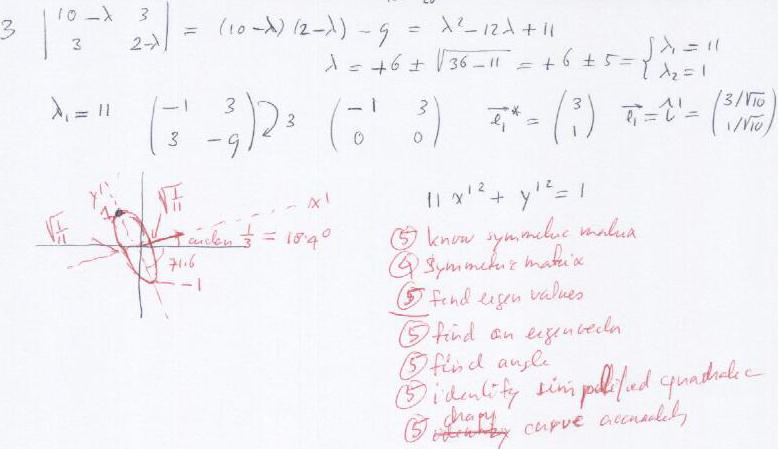 3 | 10-λ 3 / 3 2-λ | = (10-λ)(2-λ) - 9 = λ² - 12λ + 11
λ = +6 ± √36-11 = +6 ± 5 = { λ₁ = 11 / λ₂ = 1
λ₁ = 11 (-1 3 / 3 -9) 3 (-1 3 / 0 0) e₁* = (3 / 1) e₁ = î' = (3/√10 / 1/√10)
11 x'² + y'² = 1
y' 1 √1/11 x'
√1/11 arctan 1/3 = 18.4°
71.6
-1
⑤ know symmetric matrix
④ symmetric matrix
⑤ find eigen values
⑤ find an eigenvector
⑤ find angle
⑤ identify simplified quadratic
⑤ draw curve accurately